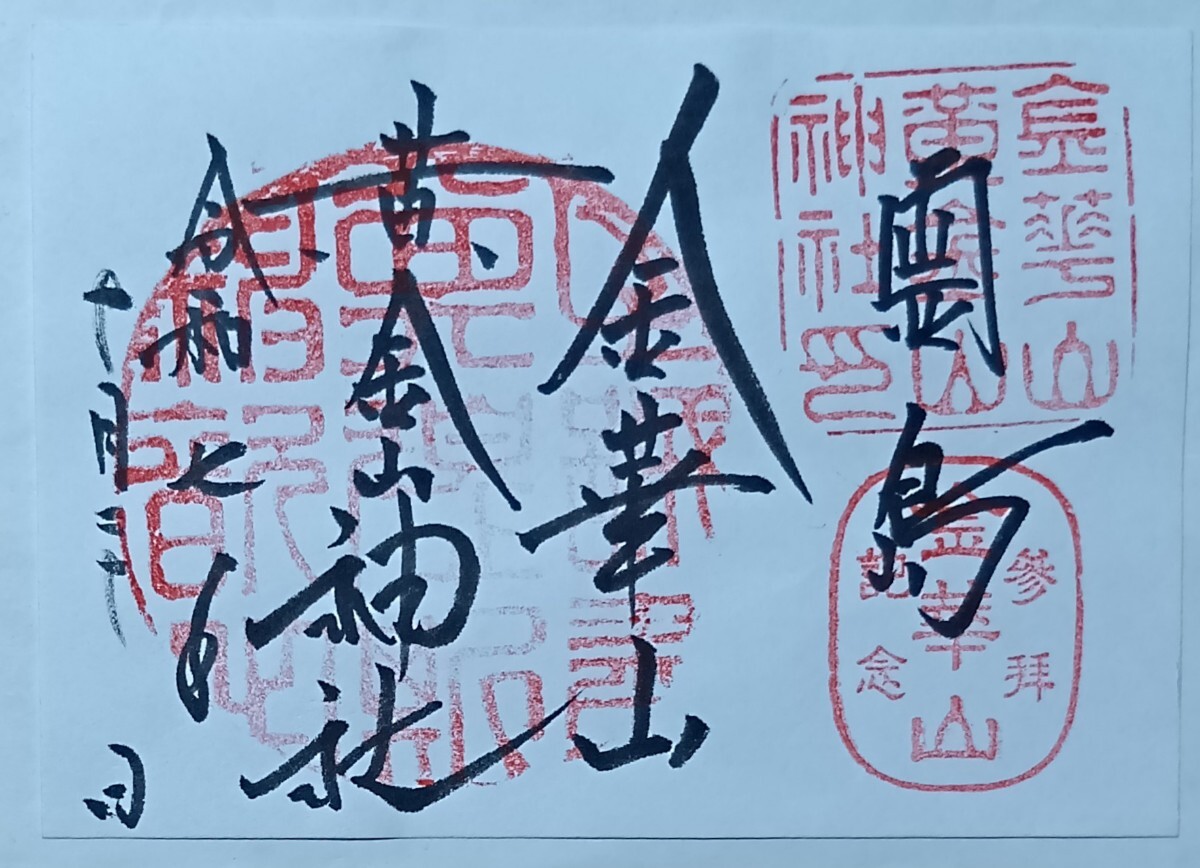 霊島
金華山
黄金山神社
令和七年
十月二十日
金華山
黄金山
神社印
參拜
金華山
記念